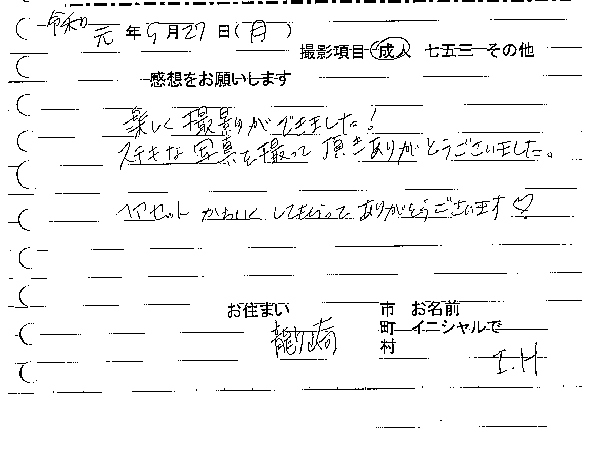 令和元年9月27日(月)
撮影項目 成人 七五三 その他
感想をお願いします
楽しく撮影ができました!
ステキな写真を撮って頂きありがとうございました。
ヘアセットかわいくしてもらってありがとうございます♡
お住まい 龍ヶ崎 市 町 村
お名前 イニシャルで I.H